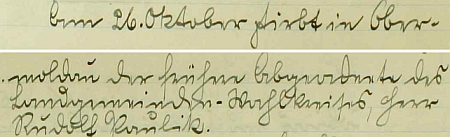 Am 26. Oktober stirbt in Ober-
moldau der frühere Abgeordnete des
Landgemeinden-Wahlkreises, Herr
Rudolf Paulik.